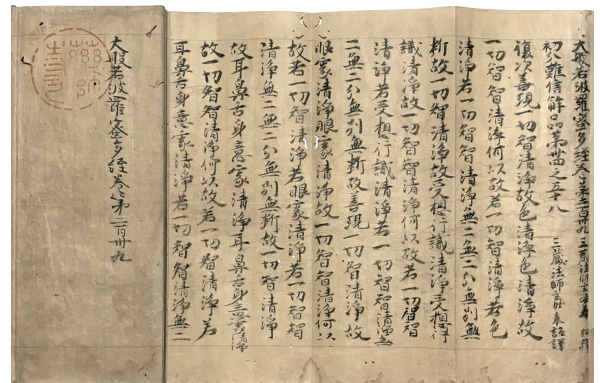 大般若波羅蜜多經卷第二百卅九 三藏法師玄奘奉
初分難信解品第卅四之五十八 三藏法師玄奘奉詔譯
復次善現一切智智清淨故色清淨色清淨故
一切智智清淨何以故若一切智智清淨若色
清淨若一切智智清淨無二無二分無別無
斷故一切智智清淨故受想行識清淨受想行
識清淨故一切智智清淨何以故若一切智智
清淨若受想行識清淨若一切智智清淨無
二無二分無別無斷故善現一切智智清淨故
眼處清淨眼處清淨故一切智智清淨何以
故若一切智智清淨若眼處清淨若一切智智
清淨無二無二分無別無斷故一切智智清淨
故耳鼻舌身意處清淨耳鼻舌身意處清淨
故一切智智清淨何以故若一切智智清淨若
耳鼻舌身意處清淨若一切智智清淨無二
大般若波羅蜜多經卷第二百卅九